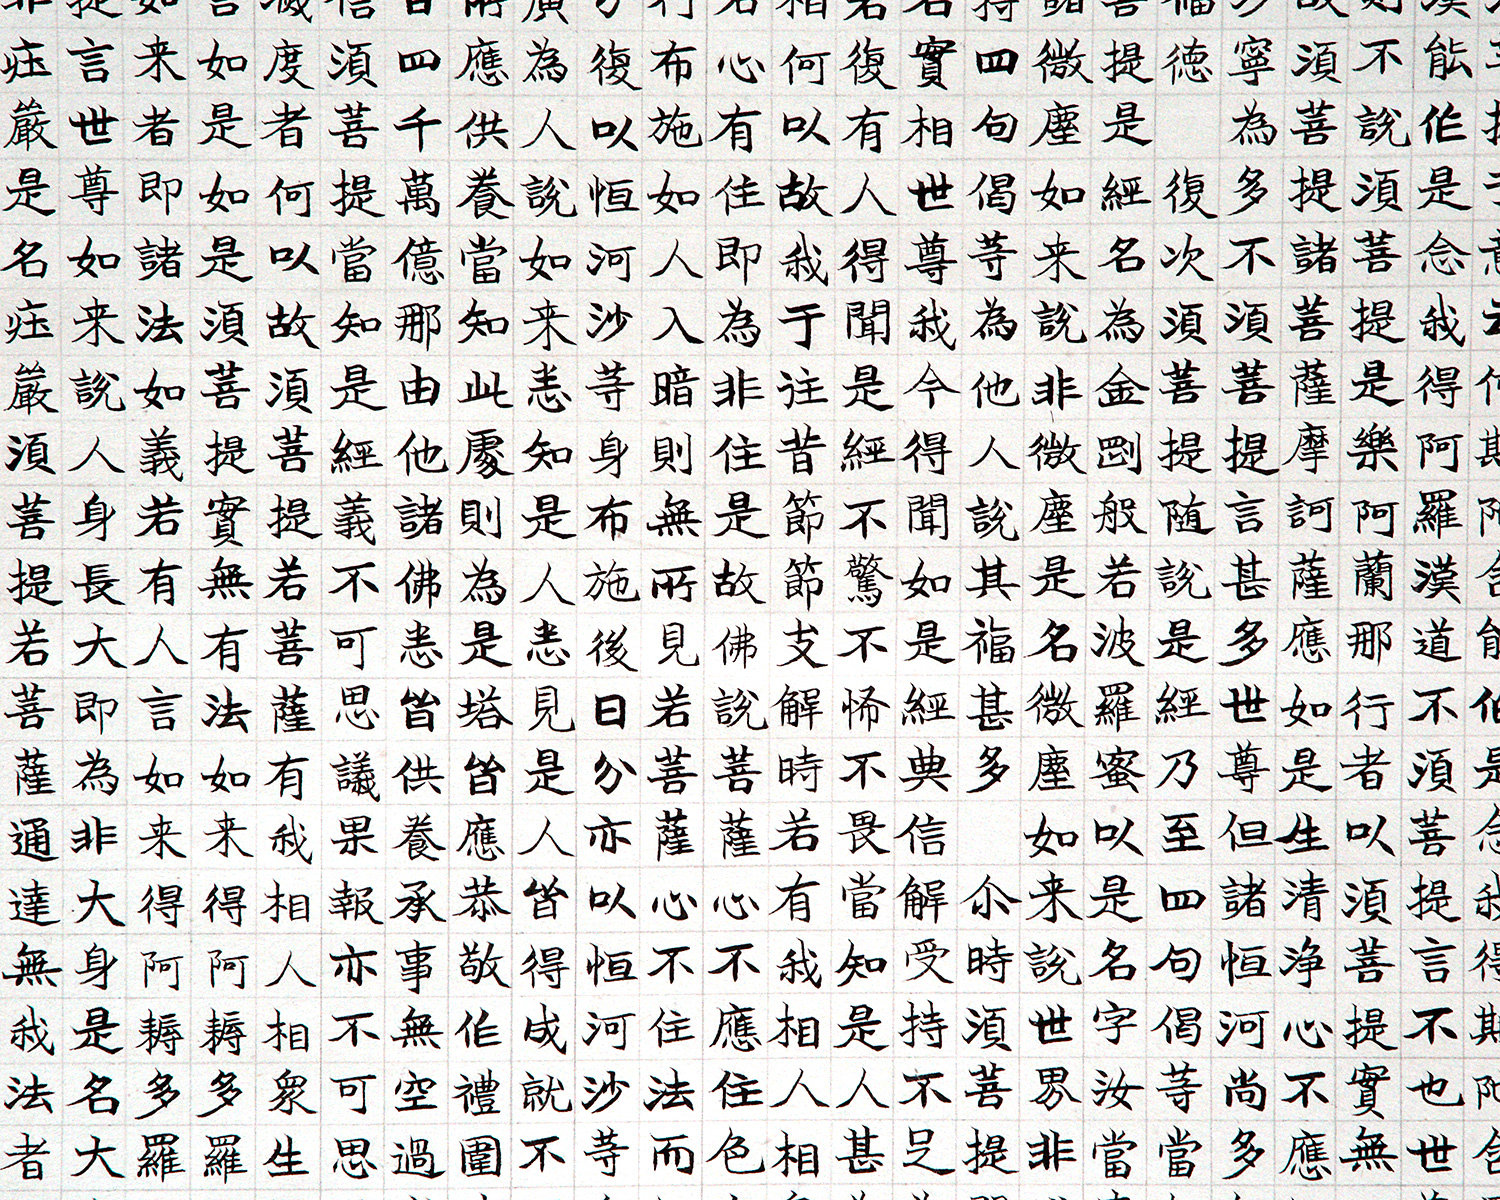 能作是念我得阿羅漢道不須菩提言不也世
不說須菩提是樂阿蘭那行者以須菩提實無
須菩提諸菩薩摩訶薩應如是生清淨心不應
寧為多不須菩提言甚多世尊但諸恒河尚多
德 復次須菩提随說是經乃至四句偈等當
提是經名為金剛般若波羅蜜以是名字汝當
微塵如来說非微塵是名微塵如来說世界非
四句偈等為他人說其福甚多 尒時須菩提
實相世尊我今得聞如是經典信解受持不足
復有人得聞是經不驚不怖不畏當知是人甚
何以故我于往昔節節支解時若有我相人相
心有住即為非住是故佛說菩薩心不應住色
布施如人入暗則無所見若菩薩心不住法而
復以恒河沙等身布施後日分亦以恒河沙等
為人說如来悉知是人悉見是人皆得成就不
應供養當知此處則為是塔皆應恭敬作禮圍
四千萬億那由他諸佛悉皆供養承事無空過
須菩提當知是經義不可思議果報亦不可思
度者何以故須菩提若菩薩有我相人相衆生
如是如是須菩提實無有法如来得阿耨多羅
来者即諸法如義若有人言如来得阿耨多羅
言世尊如来說人身長大即為非大身是名大
庄嚴是名庄嚴須菩提若菩薩通達無我法者